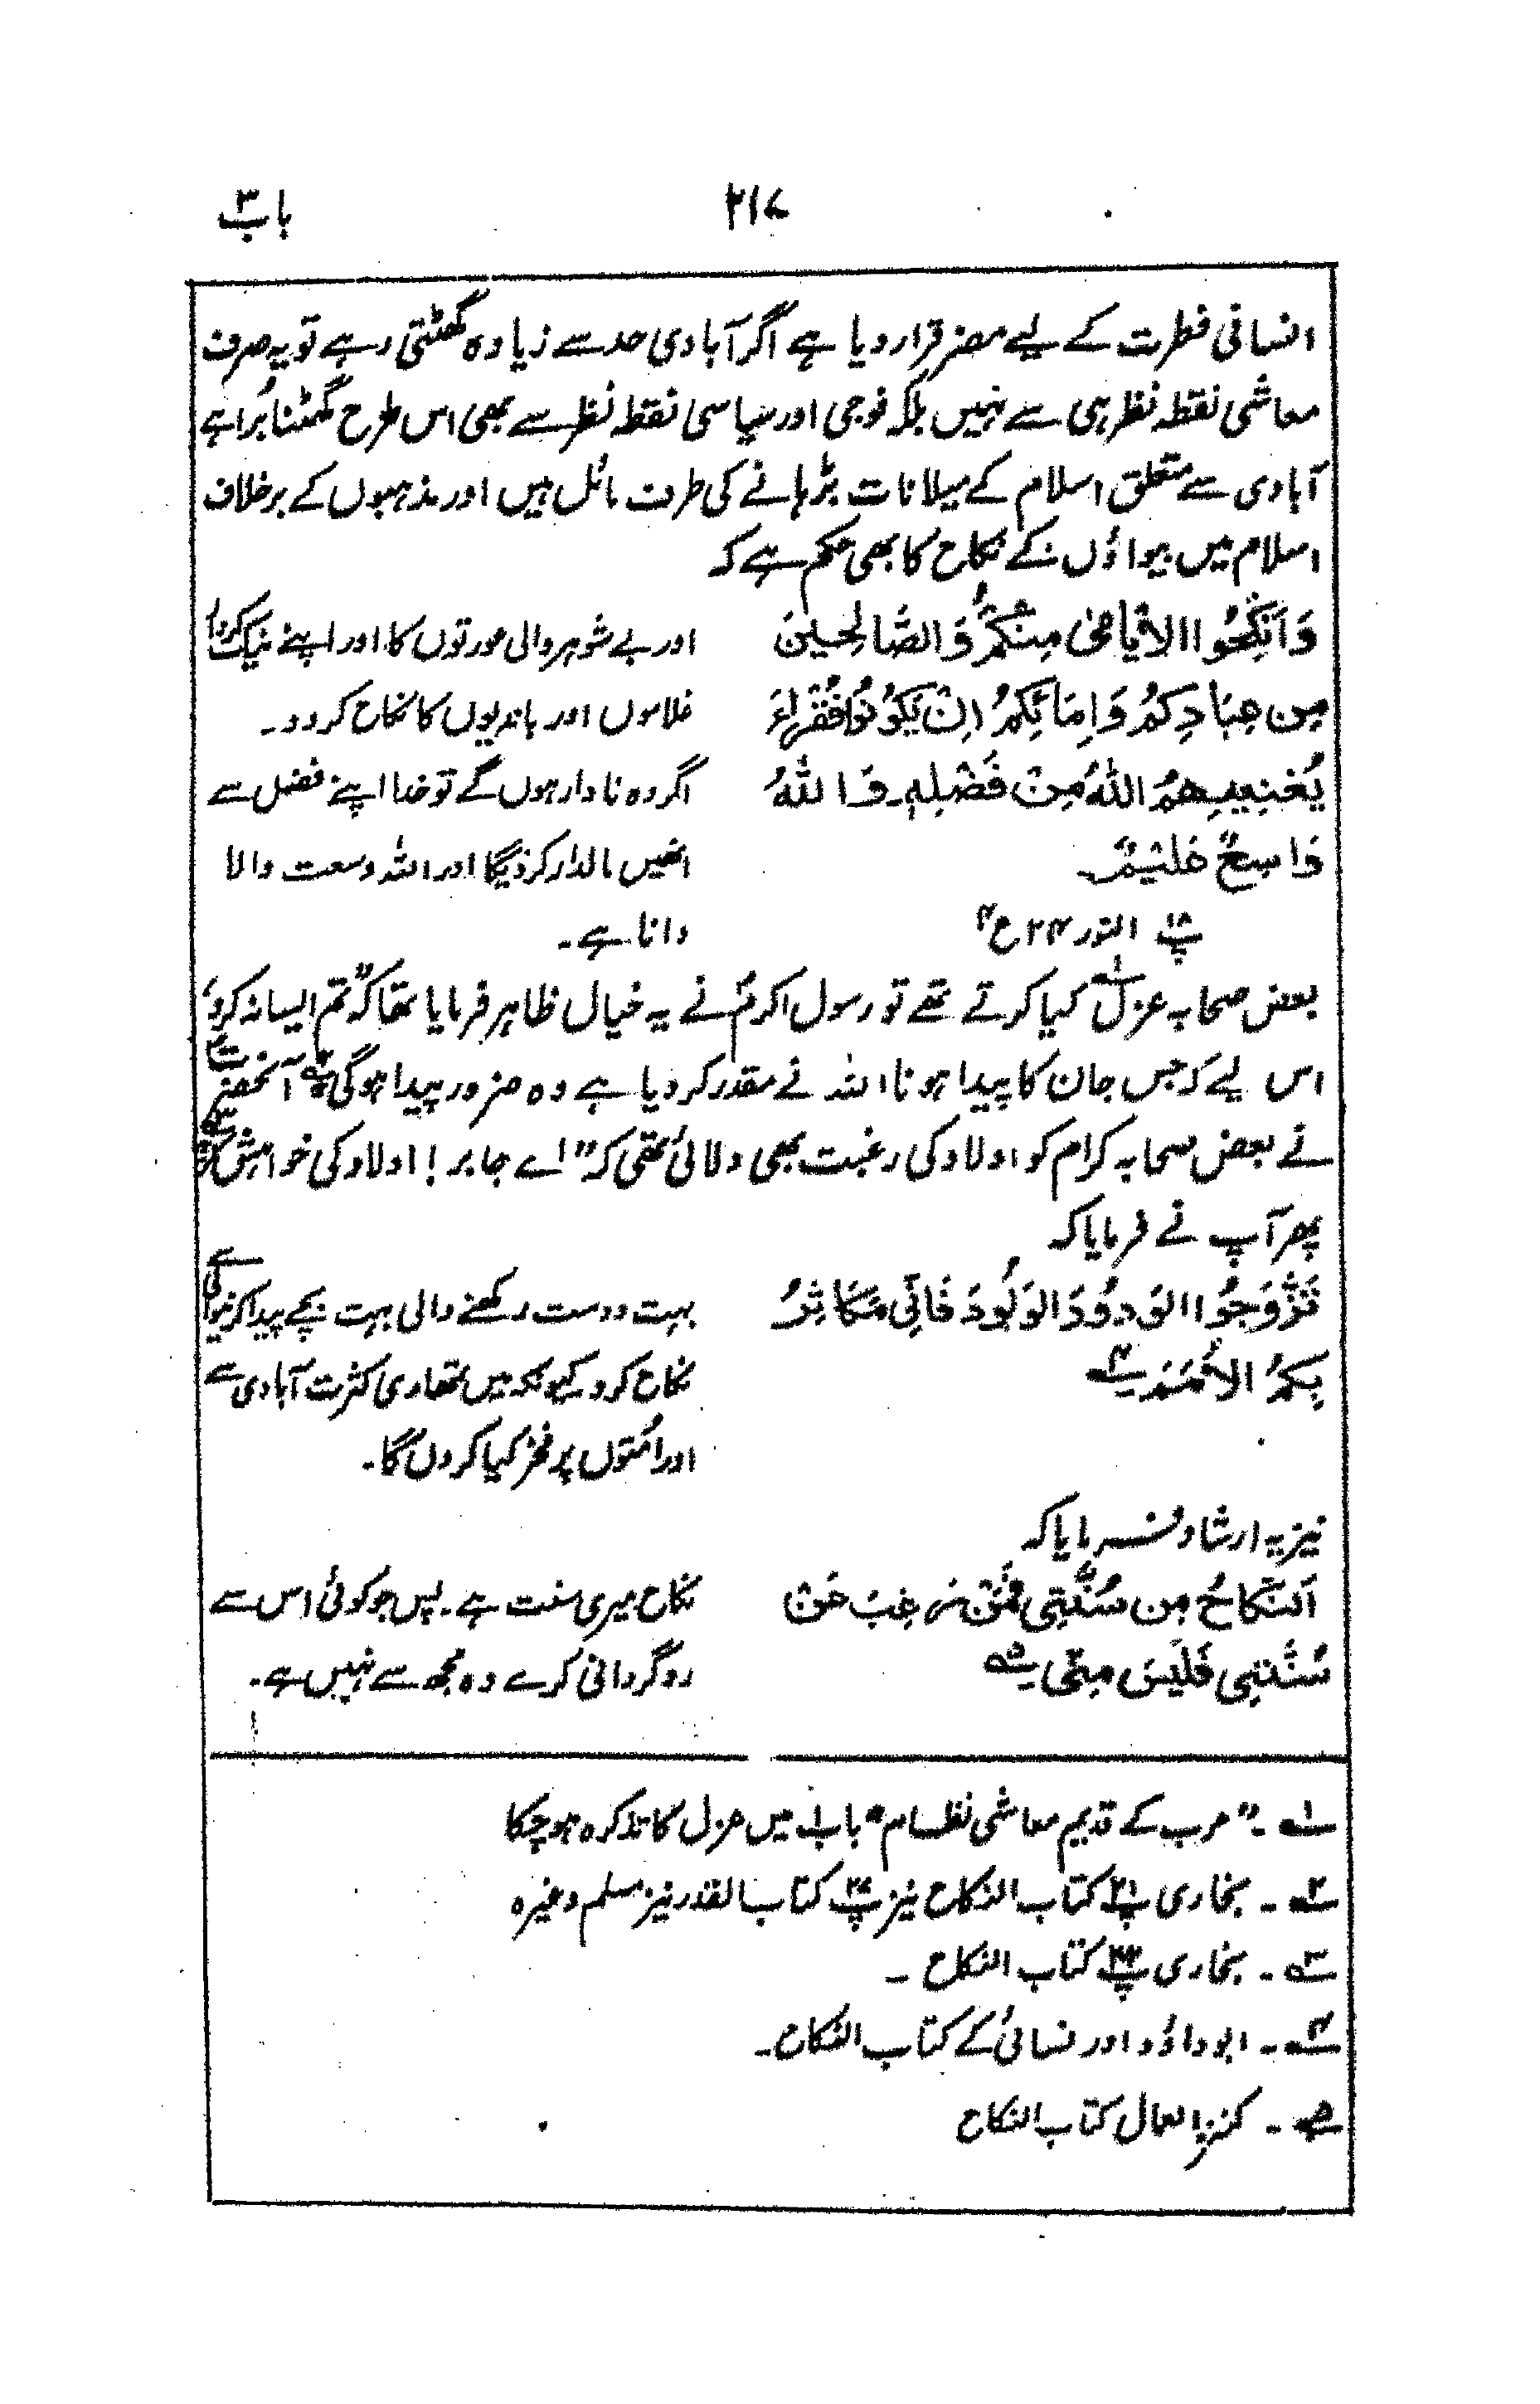 باب ۳
۲۱۷
انسانی فطرت کے لیے مضر قرار دیا ہے اگر آبادی حد سے زیادہ گھٹتی رہے تو یہ صرف
معاشی نقطہ نظر ہی سے نہیں بلکہ فوجی اور سیاسی نقطہ نظر سے بھی اس طرح گھٹنا بُرا ہے
آبادی سے متعلق اسلام کے میلانات بڑہانے کی طرف مائل ہیں اور مذہبوں کے برخلاف
اسلام میں بیواؤں کے نکاح کا بھی حکم ہے کہ
وَاَنکِحُوا الاَیَامٰی مِنکُمْ وَالصَّالِحِینَ
مِن عِبَادِکُمْ وَاِمَائِکُمْ اِنْ یَکُوْنُوْا فُقَرَاءَ
یُغنِیهِمُ اللّٰہُ مِنْ فَضْلِہٖ وَاللّٰہُ
وَاسِعٌ عَلِیْمٌ۔
پ۱۸ النور ۲۴ ع ۴
اور بے شوہر والی عورتوں کا اور اپنے نیک کردار
غلاموں اور باندیوں کا نکاح کر دو۔
اگر وہ نادار ہوں گے تو خدا اپنے فضل سے
انھیں مالدار کر دیگا اور اللہ وسعت والا
دانا ہے۔
بعض صحابہ عزل۱ کیا کرتے تھے تو رسول اکرمؐ نے یہ خیال ظاہر فرمایا تھا کہ ”تم ایسا نہ کرو،
اس لیے کہ جس جان کا پیدا ہونا اللہ نے مقدر کر دیا ہے وہ ضرور پیدا ہوگی“۲ آنحضرت
نے بعض صحابہ کرام کو اولاد کی رغبت بھی دلائی تھی کہ ”اے جابر! اولاد کی خواہش کر“۳
پھر آپ نے فرمایا کہ
تَزَّوَجُوا الوَدُودَ الوَلُودَ فَاِنِّی مُکَاثِرُ
بِکُمُ الاُمَمَ۴
بہت دوست رکھنے والی بہت بچے پیدا کرنیوالی سے
نکاح کرو۔ کیونکہ میں تمھاری کثرت آبادی سے
اور امتوں پر فخر کیا کروں گا۔
نیز یہ ارشاد فرمایا کہ
اَلنِّکَاحُ مِن سُنَّتِی فَمَنْ رَغِبَ عَنْ
سُنَّتِی فَلَیسَ مِنِّی۵
نکاح میری سنت ہے۔ پس جو کوئی اس سے
روگردانی کرے وہ مجھ سے نہیں ہے۔
۱۔ ”عرب کے قدیم معاشی نظام“ باب میں عزل کا تذکرہ ہو چکا
۲۔ بخاری پ۲۱ کتاب النکاح نیز پ۲۷ کتاب القدر نیز مسلم وغیرہ
۳۔ بخاری پ کتاب النکاح ۔
۴۔ ابوداؤد اور نسائی کے کتاب النکاح۔
۵۔ کنز العمال کتاب النکاح